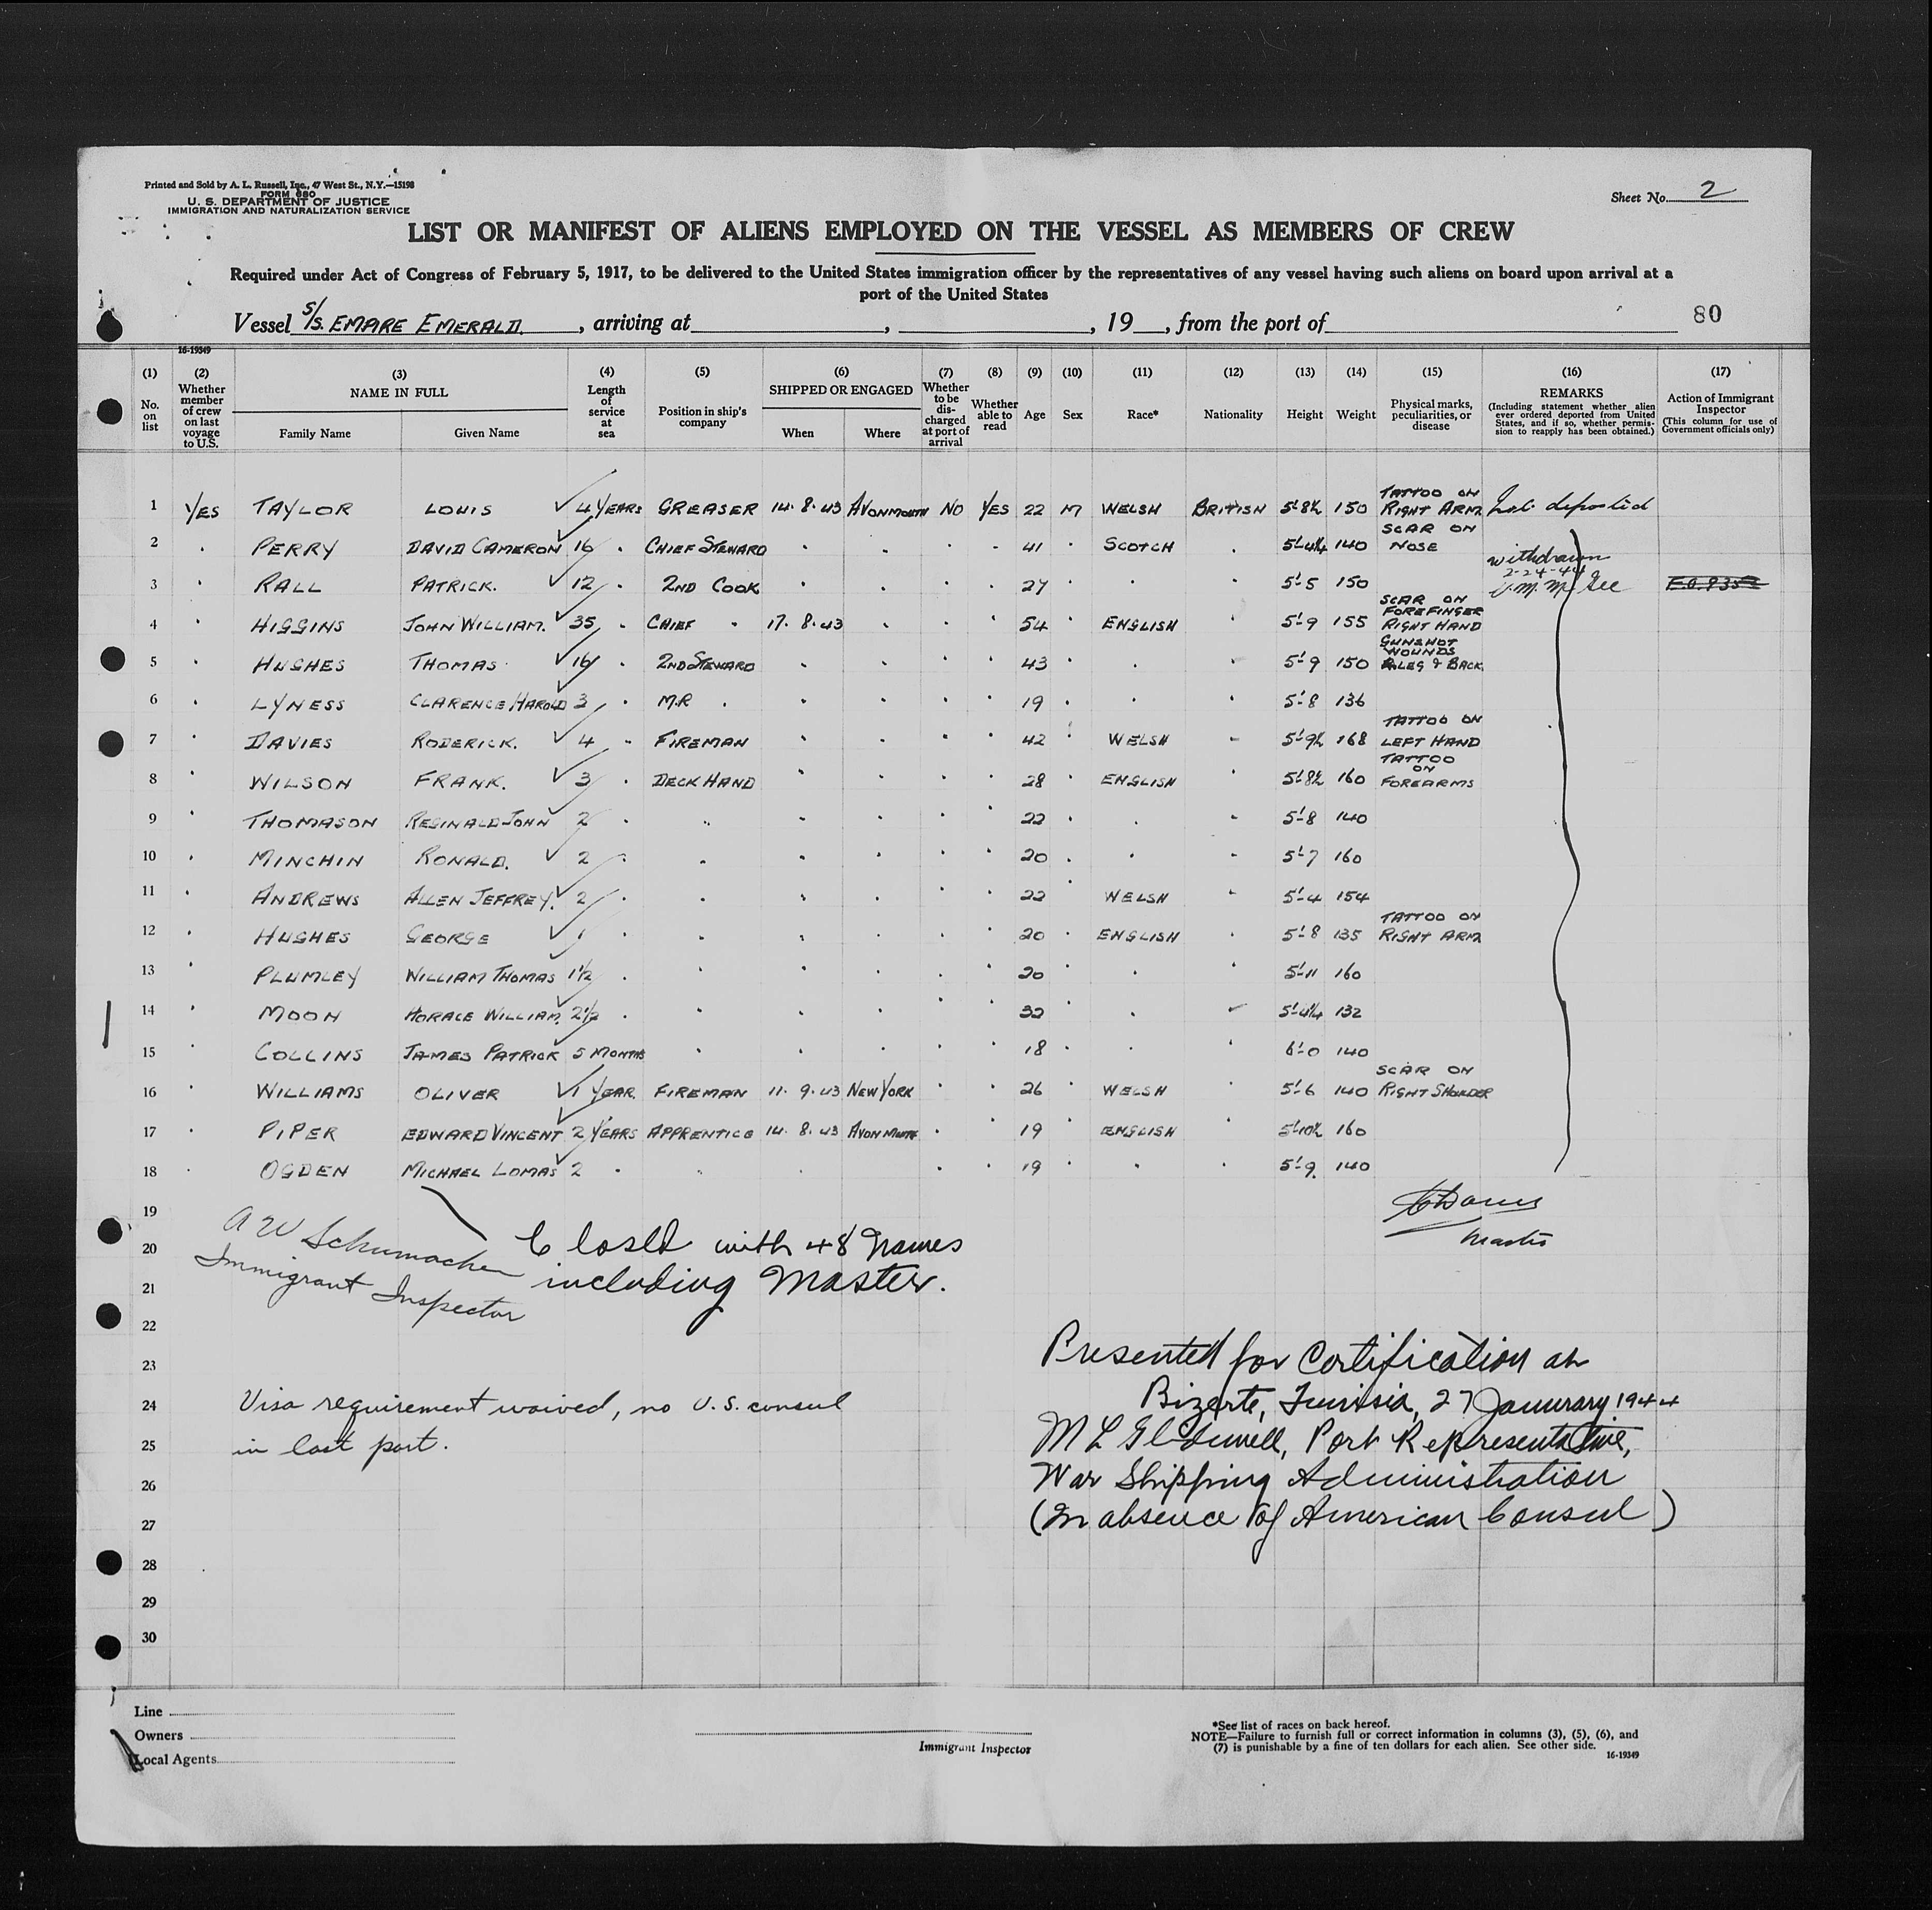 Printed and Sold by A. L. Russell, Inc., 47 West St., N.Y.—15198
FORM 680
U. S. DEPARTMENT OF JUSTICE
IMMIGRATION AND NATURALIZATION SERVICE
Sheet No. 2
LIST OR MANIFEST OF ALIENS EMPLOYED ON THE VESSEL AS MEMBERS OF CREW
Required under Act of Congress of February 5, 1917, to be delivered to the United States immigration officer by the representatives of any vessel having such aliens on board upon arrival at a
port of the United States
Vessel S/S. EMPIRE EMERALD, arriving at , , 19 , from the port of 80
16-19349
(1) (2) (3) (4) (5) (6) (7) (8) (9) (10) (11) (12) (13) (14) (15) (16) (17)
No. on list
Whether member of crew on last voyage to U.S.
NAME IN FULL
Family Name Given Name
Length of service at sea
Position in ship's company
SHIPPED OR ENGAGED
When Where
Whether to be discharged at port of arrival
Whether able to read
Age Sex Race* Nationality Height Weight
Physical marks, peculiarities, or disease
REMARKS
(Including statement whether alien ever ordered deported from United States, and if so, whether permission to reapply has been obtained.)
Action of Immigrant Inspector
(This column for use of Government officials only)
1 YES TAYLOR LOUIS ✓ 4 YEARS GREASER 14.8.43 AVONMOUTH NO YES 22 M WELSH BRITISH 5'-8½ 150 TATTOO ON RIGHT ARM Not deported
2 . PERRY DAVID CAMERON 16 . CHIEF STEWARD . . . . 41 . SCOTCH . 5'-4¼ 140 SCAR ON NOSE
withdrawn
2-24-44
3 . RALL PATRICK. ✓ 12 . 2ND COOK . . . . 27 . . . 5'-5 150 E.O. 9352
4 . HIGGINS JOHN WILLIAM. 35 . CHIEF . 17.8.43 . . . 54 . ENGLISH . 5'-9 155 SCAR ON FOREFINGER RIGHT HAND
5 . HUGHES THOMAS. ✓ 16 . 2ND STEWARD . . . . 43 . . . 5'-9 150 GUNSHOT WOUNDS R. LEG & BACK
6 . LYNESS CLARENCE HAROLD 3 . M.R . . . . . 19 . . . 5'-8 136
7 . DAVIES RODERICK. ✓ 4 . FIREMAN . . . . 42 . WELSH . 5'-9½ 168 TATTOO ON LEFT HAND
8 . WILSON FRANK. ✓ 3 . DECK HAND . . . . 28 . ENGLISH . 5'-8½ 160 TATTOO ON FOREARMS
9 . THOMASON REGINALD JOHN 2 . . . . . . 22 . . . 5'-8 140
10 . MINCHIN RONALD. ✓ 2 . . . . . . 20 . . . 5'-7 160
11 . ANDREWS ALLEN JEFFREY. 2 . . . . . . 22 . WELSH . 5'-4 154
12 . HUGHES GEORGE ✓ 1 . . . . . . 20 . ENGLISH . 5'-8 135 TATTOO ON RIGHT ARM
13 . PLUMLEY WILLIAM THOMAS 1½ . . . . . . 20 . . . 5'-11 160
14 . MOON HORACE WILLIAM. 2½ . . . . . . 32 . . . 5'-4¼ 132
15 . COLLINS JAMES PATRICK 5 MONTHS . . . . . 18 . . . 6'-0 140
16 . WILLIAMS OLIVER ✓ 1 YEAR. FIREMAN 11.9.43 NEW YORK . . 26 . WELSH . 5'-6 140 SCAR ON RIGHT SHOULDER
17 . PIPER EDWARD VINCENT 2 YEARS APPRENTICE 14.8.43 AVONMOUTH . . 19 . ENGLISH . 5'-10½ 160
18 . OGDEN MICHAEL LOMAS 2 . . . . . 19 . . . 5'-9. 140
19
20
21
22
23
24
25
26
27
28
29
30
A W Schumacher
Immigrant Inspector
Closed with 48 names
including Master.
Master
Presented for Certification at
Bizerte, Tunisia, 27 Janurary 1944
M L Port Representative,
War Shipping Administration
(In absence of American Consul)
Visa requirement waived, no U.S. consul
in last port.
Line
Owners
Local Agents
Immigrant Inspector
*See list of races on back hereof.
NOTE—Failure to furnish full or correct information in columns (3), (5), (6), and
(7) is punishable by a fine of ten dollars for each alien. See other side.
16-19349